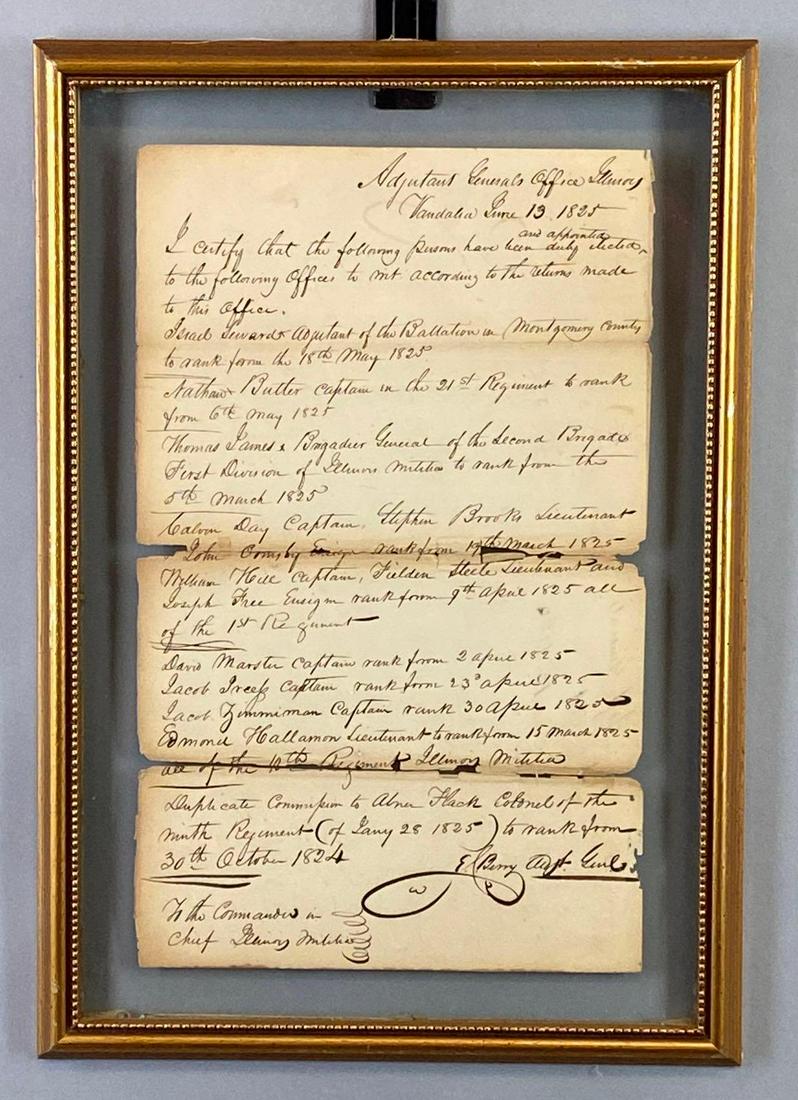 Adjutant Generals Office Illinois
Vandalia June 13 1825
and appointed
I certify that the following persons have been duly elected
to the following Offices to wit according to the returns made
to this Office.
Israel Seward Adjutant of the Battalion in Montgomery County
to rank from the 18th May 1825
Nathan Butter Captain in the 21st Regiment to rank
from 6th May 1825
Thomas James Brigadier General of the Second Brigade
First Division of Illinois Militia to rank from the
5th March 1825
Calvin Day Captain, Stephen Brooks Lieutenant
John Ormsby Ensign rank from March 1825
William Hill Captain, Fielden Steele Lieutenant and
Joseph Free Ensign rank from 9th April 1825 all
of the 1st Regiment
David Captain rank from 2 April 1825
Jacob Captain rank from 23d April 1825
Jacob Zimmirman Captain rank 30 April 1825
Edmond Hallamon Lieutenant to rank from 15 March 1825
all of the Regiment Illinois Militia
Duplicate Commission to Abner Flack Colonel of the
ninth Regiment (of Jany 28 1825) to rank from
30th October 1824 E Berry Adjt. Genl
To the Commander in
Chief Illinois Militia